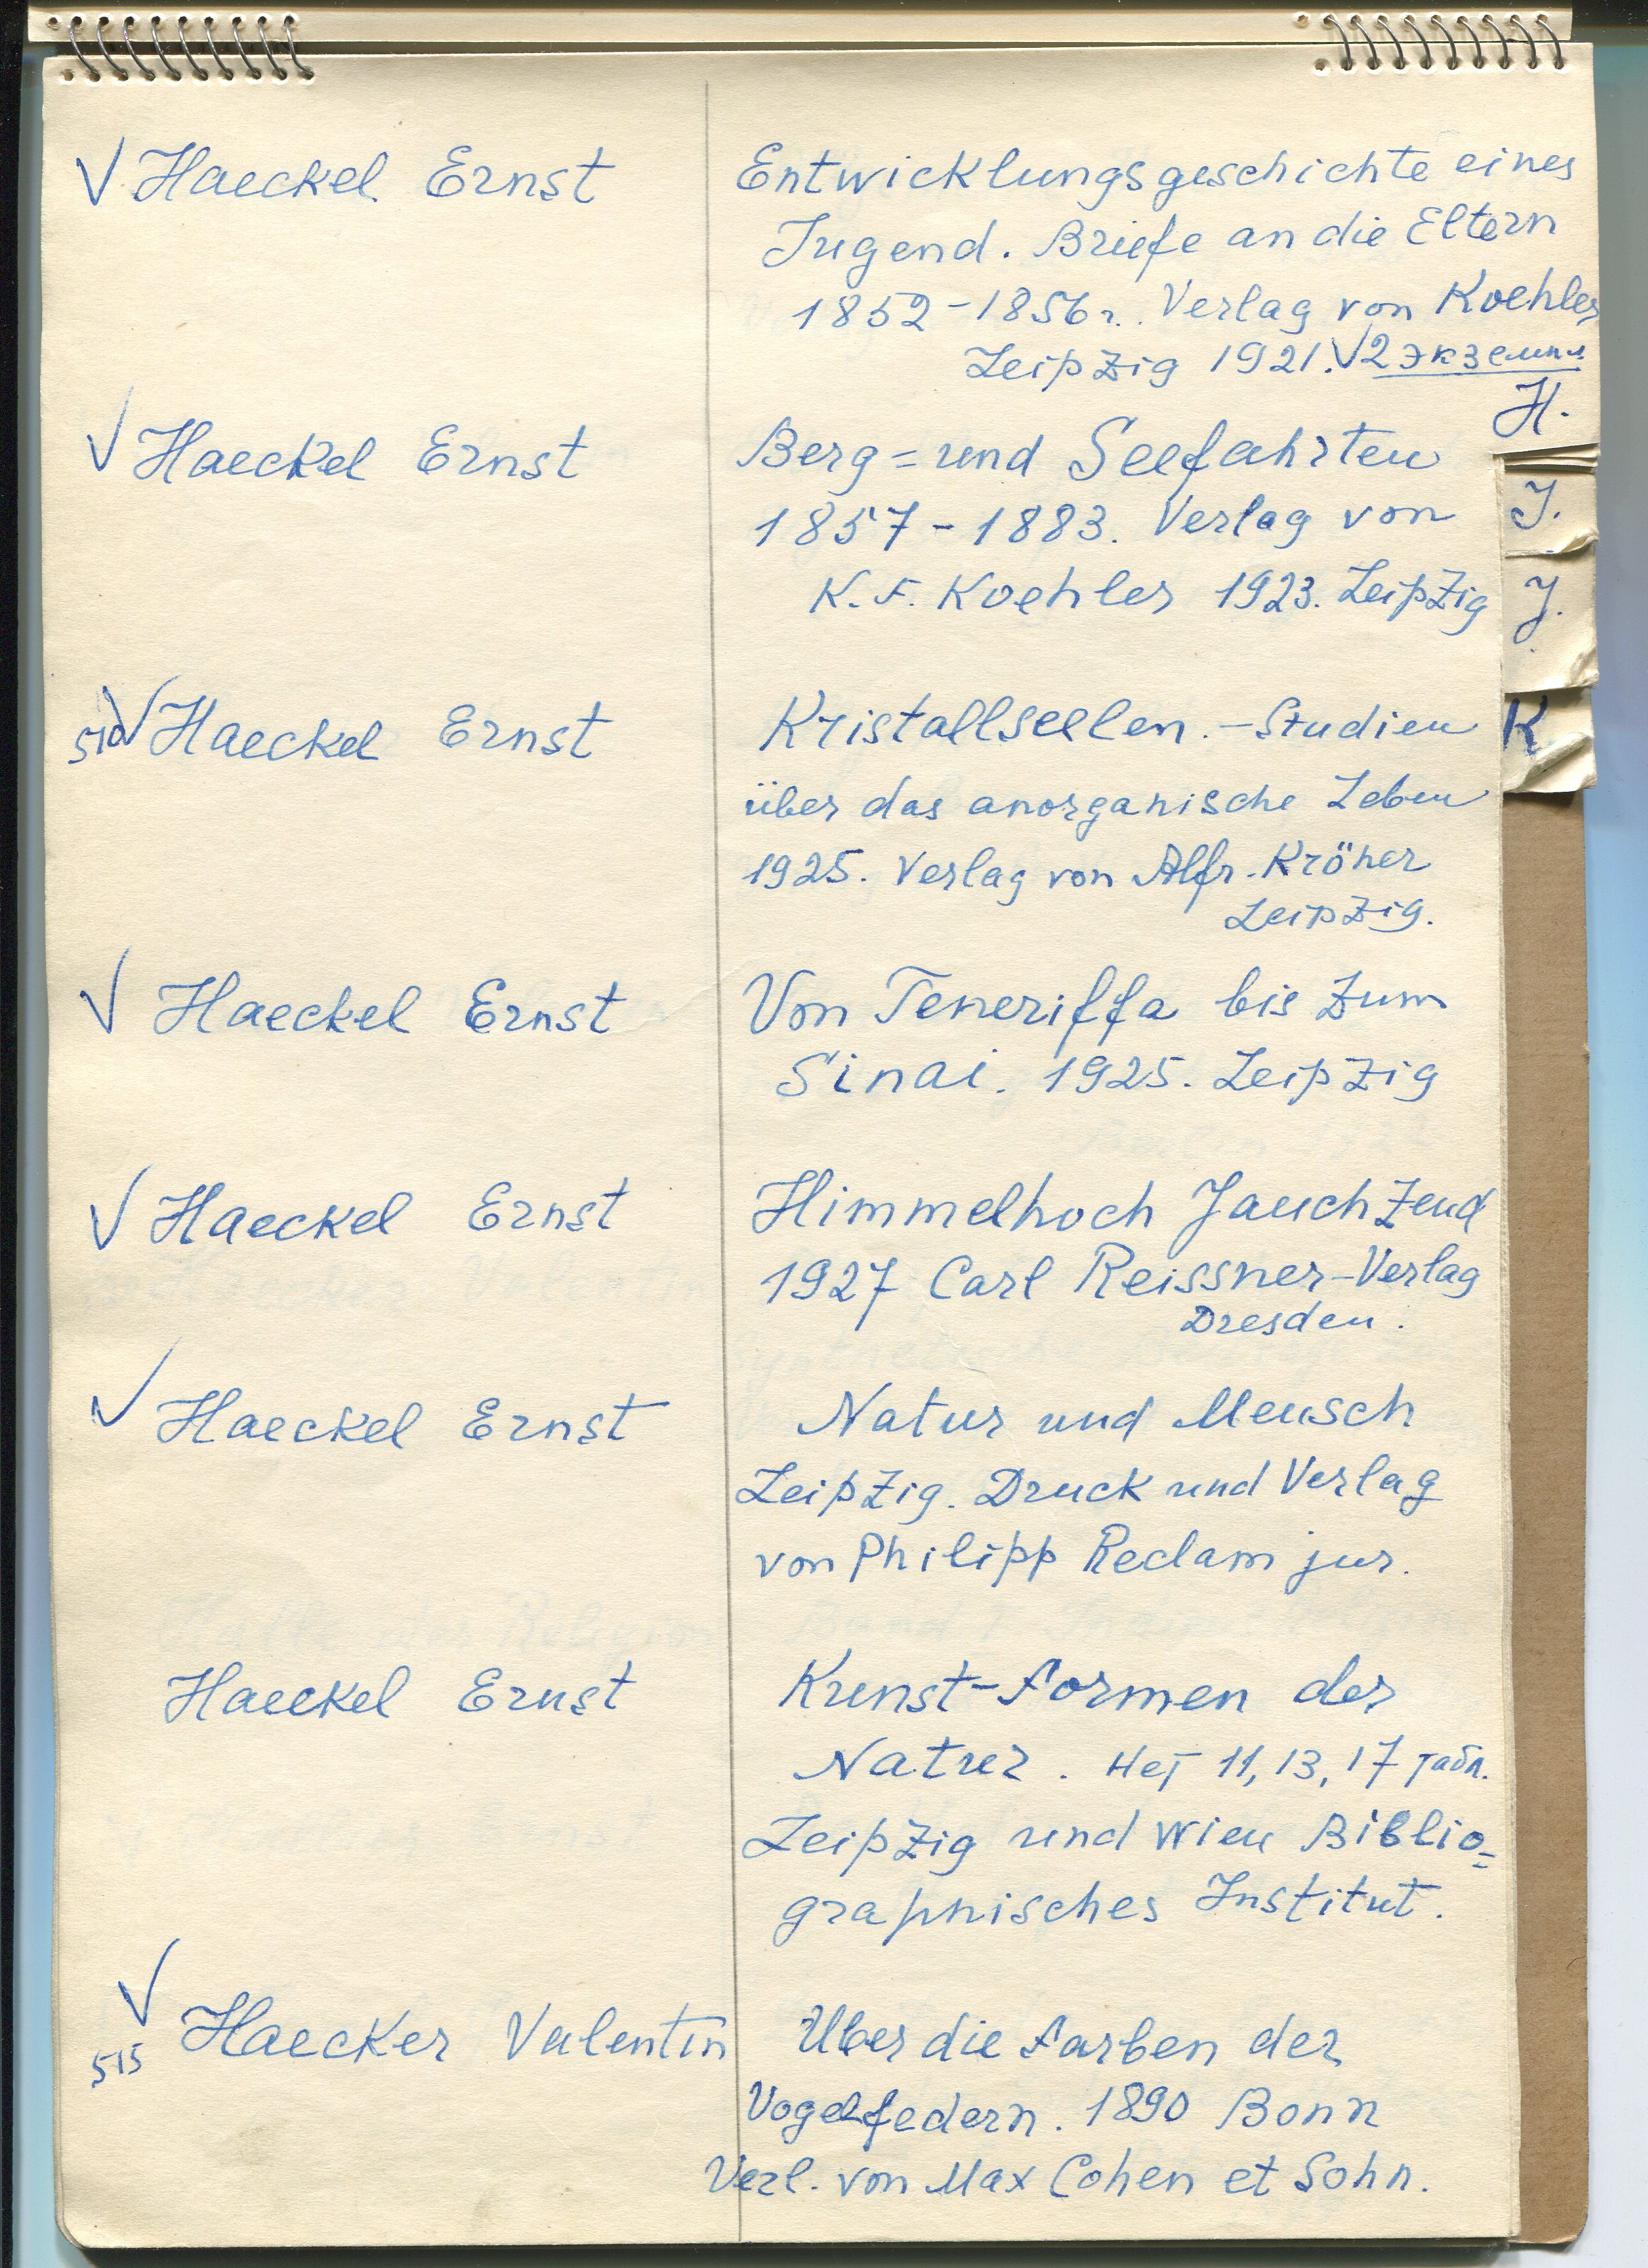 √ Haeckel Ernst Entwicklungsgeschichte eines
Jugend. Briefe an die Eltern
1852-1856 г. Verlag von Koehler
Leipzig 1921. √ 2 экземпл
H.
√ Haeckel Ernst Berg= und Seefahrten
1857-1883. Verlag von
J.
K. F. Koehler 1923. Leipzig
J.
510 √ Haeckel Ernst Kristallseelen. - Studien
K
über das anorganische Leben
1925. Verlag von Alfr. Kröner
Leipzig.
√ Haeckel Ernst Von Teneriffa bis zum
Sinai. 1925. Leipzig
√ Haeckel Ernst Himmelhoch Jauchzend
1927 Carl Reissner-Verlag
Dresden.
√ Haeckel Ernst Natur und Mensch
Leipzig. Druck und Verlag
von Philipp Reclam jur.
Haeckel Ernst Kunst-Formen der
Natur. Нет 11, 13, 17 табл.
Leipzig und Wien Biblio=
graphisches Institut.
√
515 Haecker Valentin Über die Farben der
Vogelfedern. 1890 Bonn
Verl. von Max Cohen et Sohn.